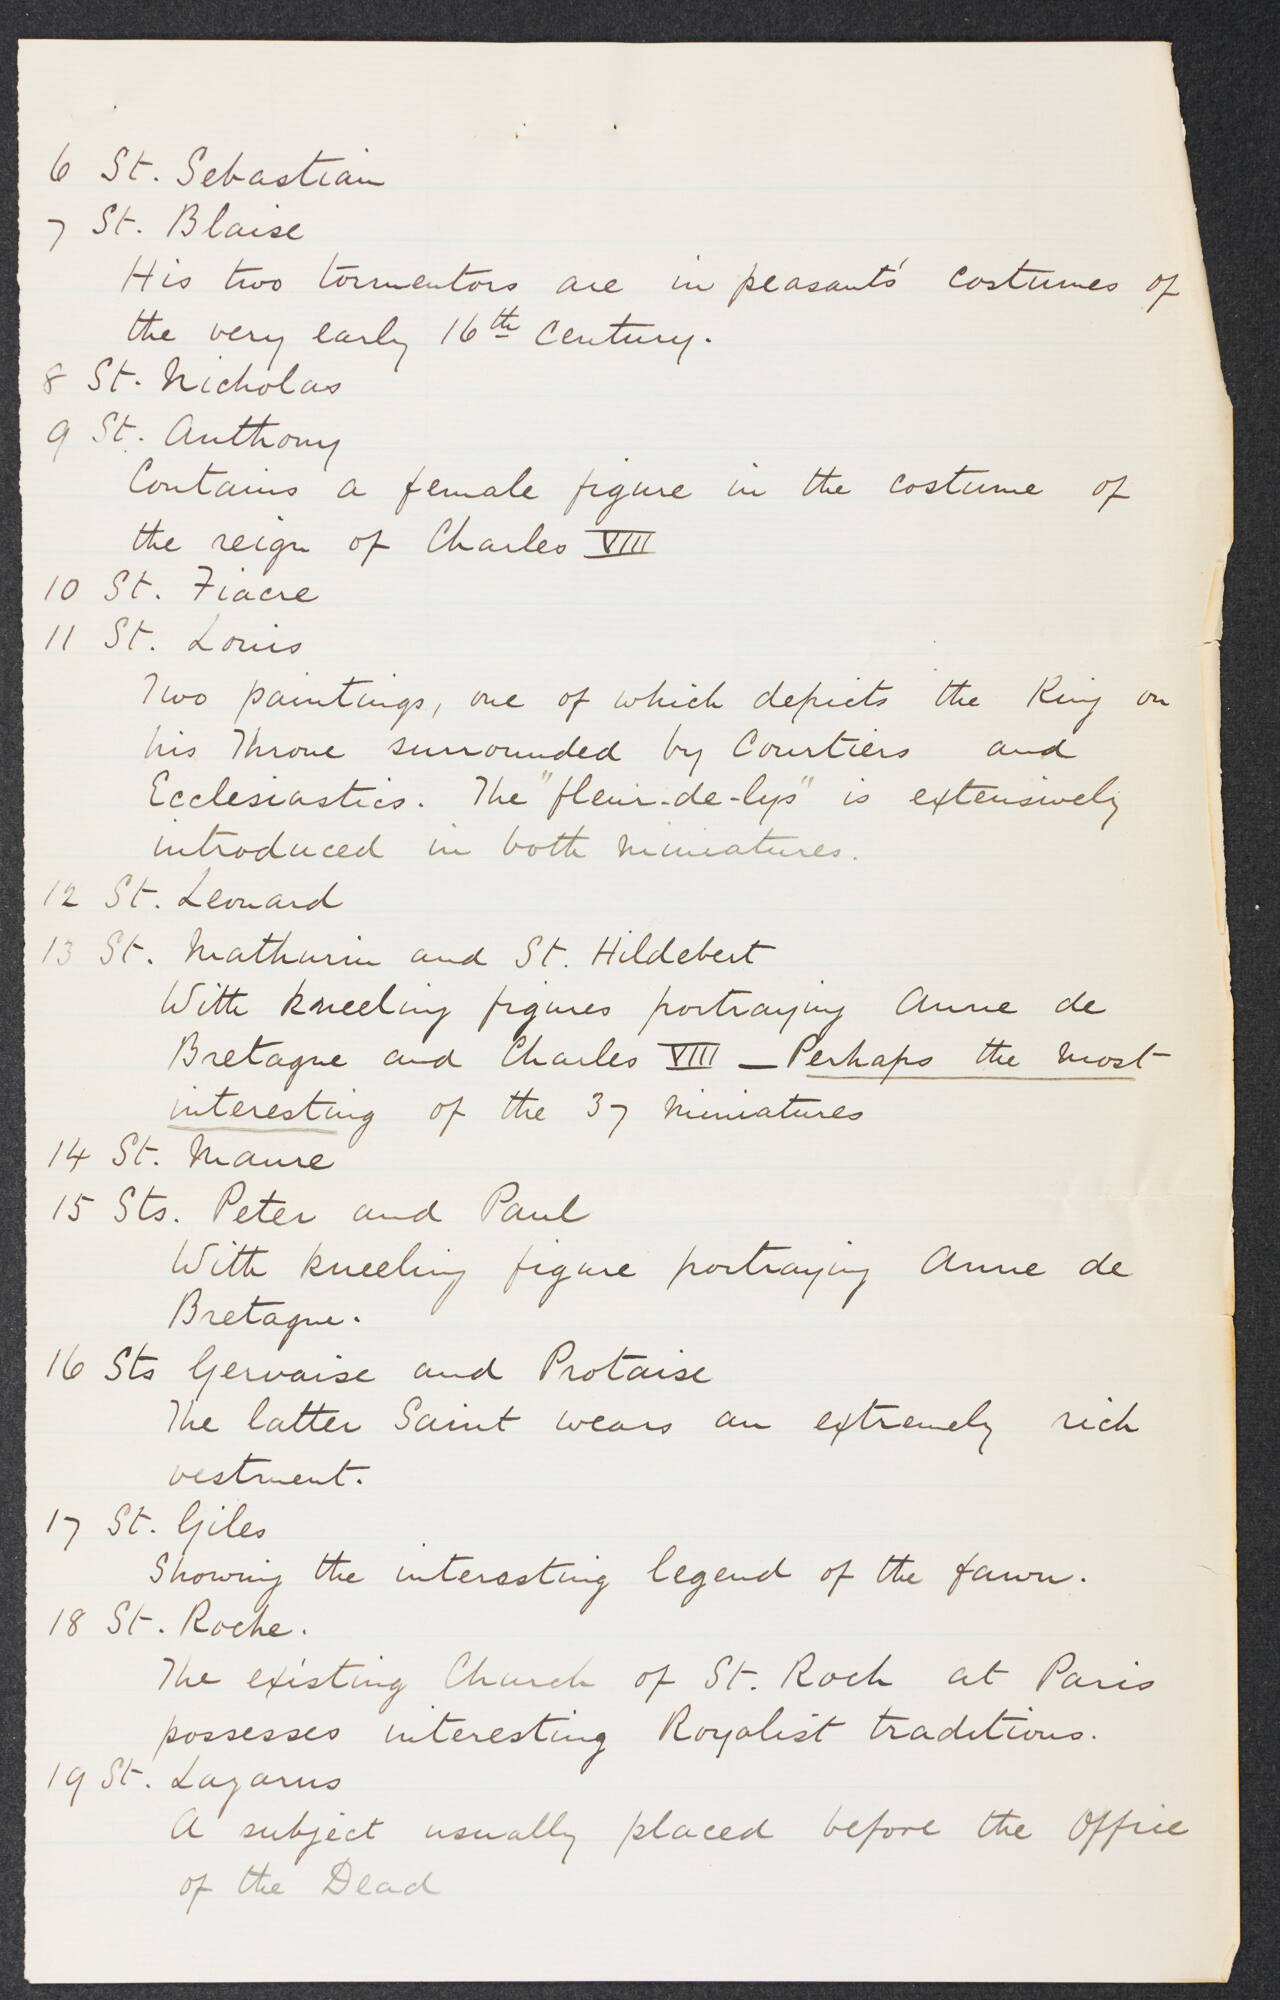 6 St. Sebastian
7 St. Blaise
His two tormentors are in peasants' costumes of
the very early 16th Century.
8 St. Nicholas
9 St. Anthony
Contains a female figure in the costume of
the reign of Charles VIII
10 St. Fiacre
11 St. Louis
Two paintings, one of which depicts the King on
his Throne surrounded by Courtiers and
Ecclesiastics. The "fleur-de-lys" is extensively
introduced in both miniatures.
12 St. Leonard
13 St. Mathurin and St. Hildebert
With kneeling figures portraying Anne de
Bretagne and Charles VIII — Perhaps the most
interesting of the 37 miniatures
14 St. Maure
15 Sts. Peter and Paul
With kneeling figure portraying Anne de
Bretagne.
16 Sts Gervaise and Protaise
The latter Saint wears an extremely rich
vestment.
17 St. Giles
Showing the interesting legend of the fawn.
18 St. Roche.
The existing Church of St. Roch at Paris
possesses interesting Royalist traditions.
19 St. Lazarus
A subject usually placed before the Office
of the Dead